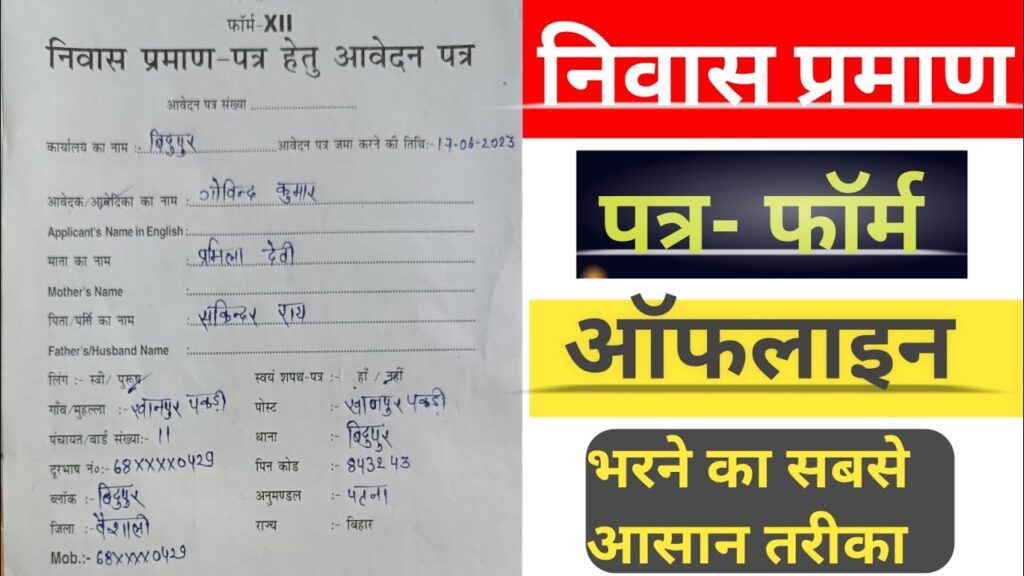 फॉर्म-XII
निवास प्रमाण-पत्र हेतु आवेदन पत्र
आवेदन पत्र संख्या ........................
कार्यालय का नाम :- बिदुपुर ........ आवेदन पत्र जमा करने की तिथि:-17-06-2023
आवेदक/आबेदिका का नाम : गोविन्द कुमार
Applicant's Name in English :
माता का नाम : प्रमिला देवी
Mother's Name :
पिता/पति का नाम : राय
Father's/Husband Name :
लिंग :- स्त्री/ पुरूष स्वयं शपथ-पत्र :- हाँ / नहीं
गाँव/मुहल्ला :- खानपुर पकड़ी पोस्ट :- खानपुर पकड़ी
पंचायत/वार्ड संख्या:- 11 थाना :- बिदुपुर
दूरभाष नं०:- 68XXXX0429 पिन कोड :- 843243
ब्लॉक :- बिदुपुर अनुमण्डल :- पटना
जिला :- वैशाली राज्य :- बिहार
Mob.:- 68XXXX0429
निवास प्रमाण
पत्र- फॉर्म
ऑफलाइन
भरने का सबसे
आसान तरीका